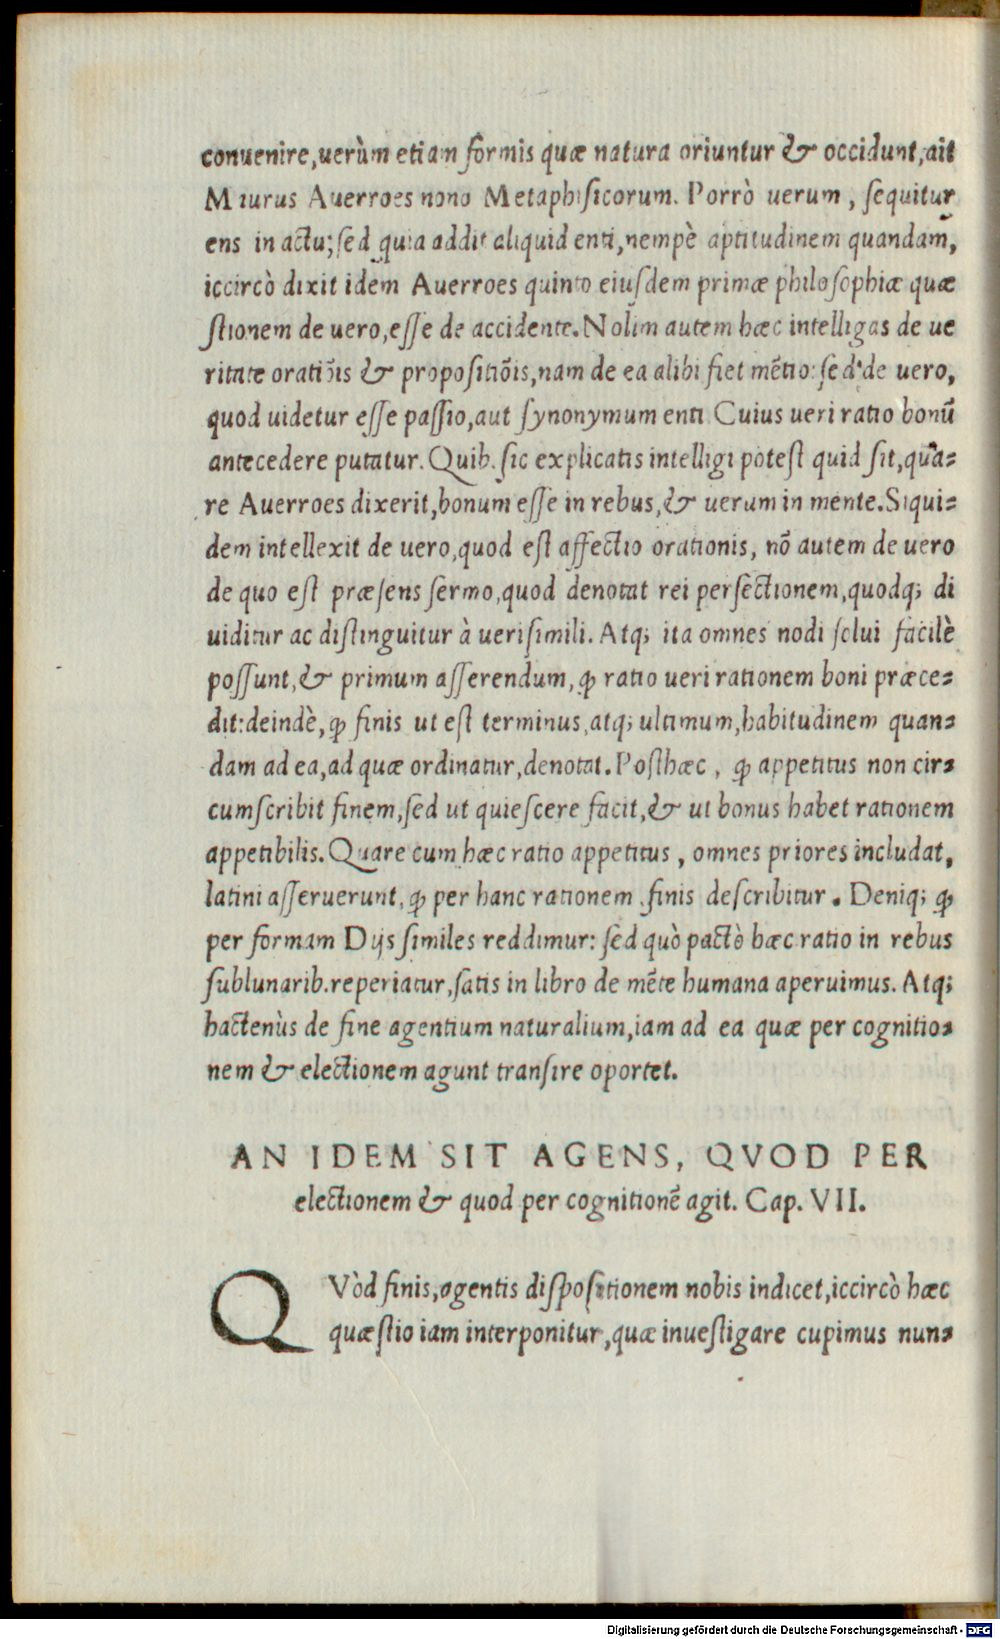 conuenire,uerùm etiam formis quæ natura oriuntur & occidunt,ait
Maurus Auerroes nono Metaphisicorum. Porrò uerum , sequitur
ens in actu;sed quia addit aliquid enti,nempè aptitudinem quandam,
iccircò dixit idem Auerroes quinto eiusdem primæ philosophiæ quæ
stionem de uero,esse de accidente.Nolim autem hæc intelligas de ue
ritate oratiõis & propositiõis,nam de ea alibi fiet mẽtio: sed de uero,
quod uidetur esse passio,aut synonymum enti Cuius ueri ratio bonũ
antecedere putatur.Quib.sic explicatis intelligi potest quid sit,qua=
re Auerroes dixerit,bonum esse in rebus,& uerum in mente.Siqui=
dem intellexit de uero,quod est affectio orationis, nõ autem de uero
de quo est præsens sermo,quod denotat rei perfectionem,quodq; di
uiditur ac distinguitur à uerisimili.Atq; ita omnes nodi solui facilè
possunt,& primum asserendum,ꝙ ratio ueri rationem boni præce=
dit:deindè,ꝙ finis ut est terminus,atq; ultimum,habitudinem quan=
dam ad ea,ad quæ ordinatur,denotat.Posthæc , ꝙ appetitus non cir=
cumscribit finem,sed ut quiescere facit,& ut bonus habet rationem
appetibilis.Quare cum hæc ratio appetitus , omnes priores includat,
latini asseruerunt,ꝙ per hanc rationem finis describitur. Deniq; ꝙ
per formam Dijs similes reddimur: sed quò pactò hæc ratio in rebus
sublunarib.reperiatur,satis in libro de mẽte humana aperuimus. Atq;
hactenùs de fine agentium naturalium,iam ad ea quæ per cognitio=
nem & electionem agunt transire oportet.
AN IDEM SIT AGENS, QVOD PER
electionem & quod per cognitionẽ agit. Cap. VII.
QVòd finis,agentis dispositionem nobis indicet,iccircò hæc
quæstio iam interponitur,quæ inuestigare cupimus nun=
Digitalisierung gefördert durch die Deutsche Forschungsgemeinschaft - DFG